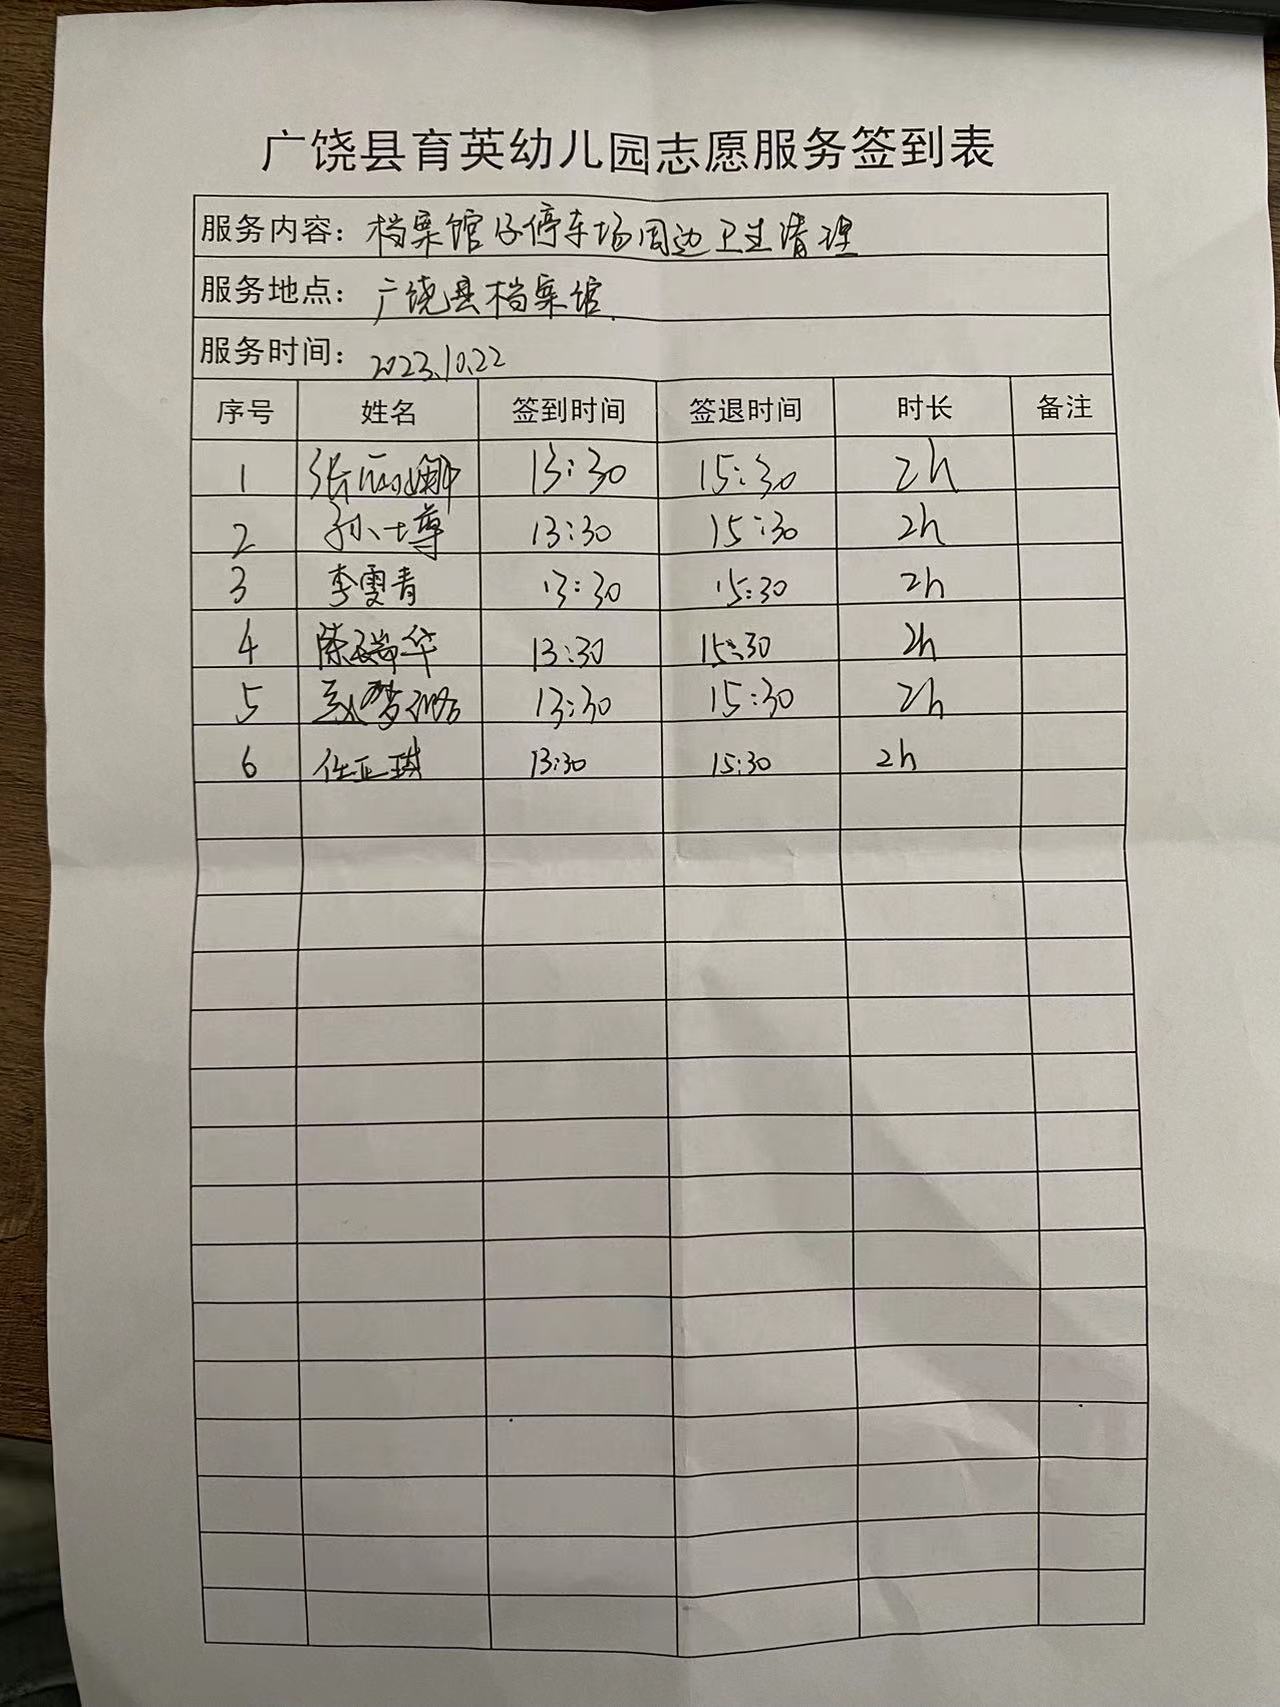 广饶县育英幼儿园志愿服务签到表
服务内容：档案馆及停车场周边卫生清理
服务地点：广饶县档案馆
服务时间：2023.10.22
序号 姓名 签到时间 签退时间 时长 备注
1 张 13:30 15:30 2h
2 孙 13:30 15:30 2h
3 李雯青 13:30 15:30 2h
4 陈瑞华 13:30 15:30 2h
5 13:30 15:30 2h
6 任正琪 13:30 15:30 2h